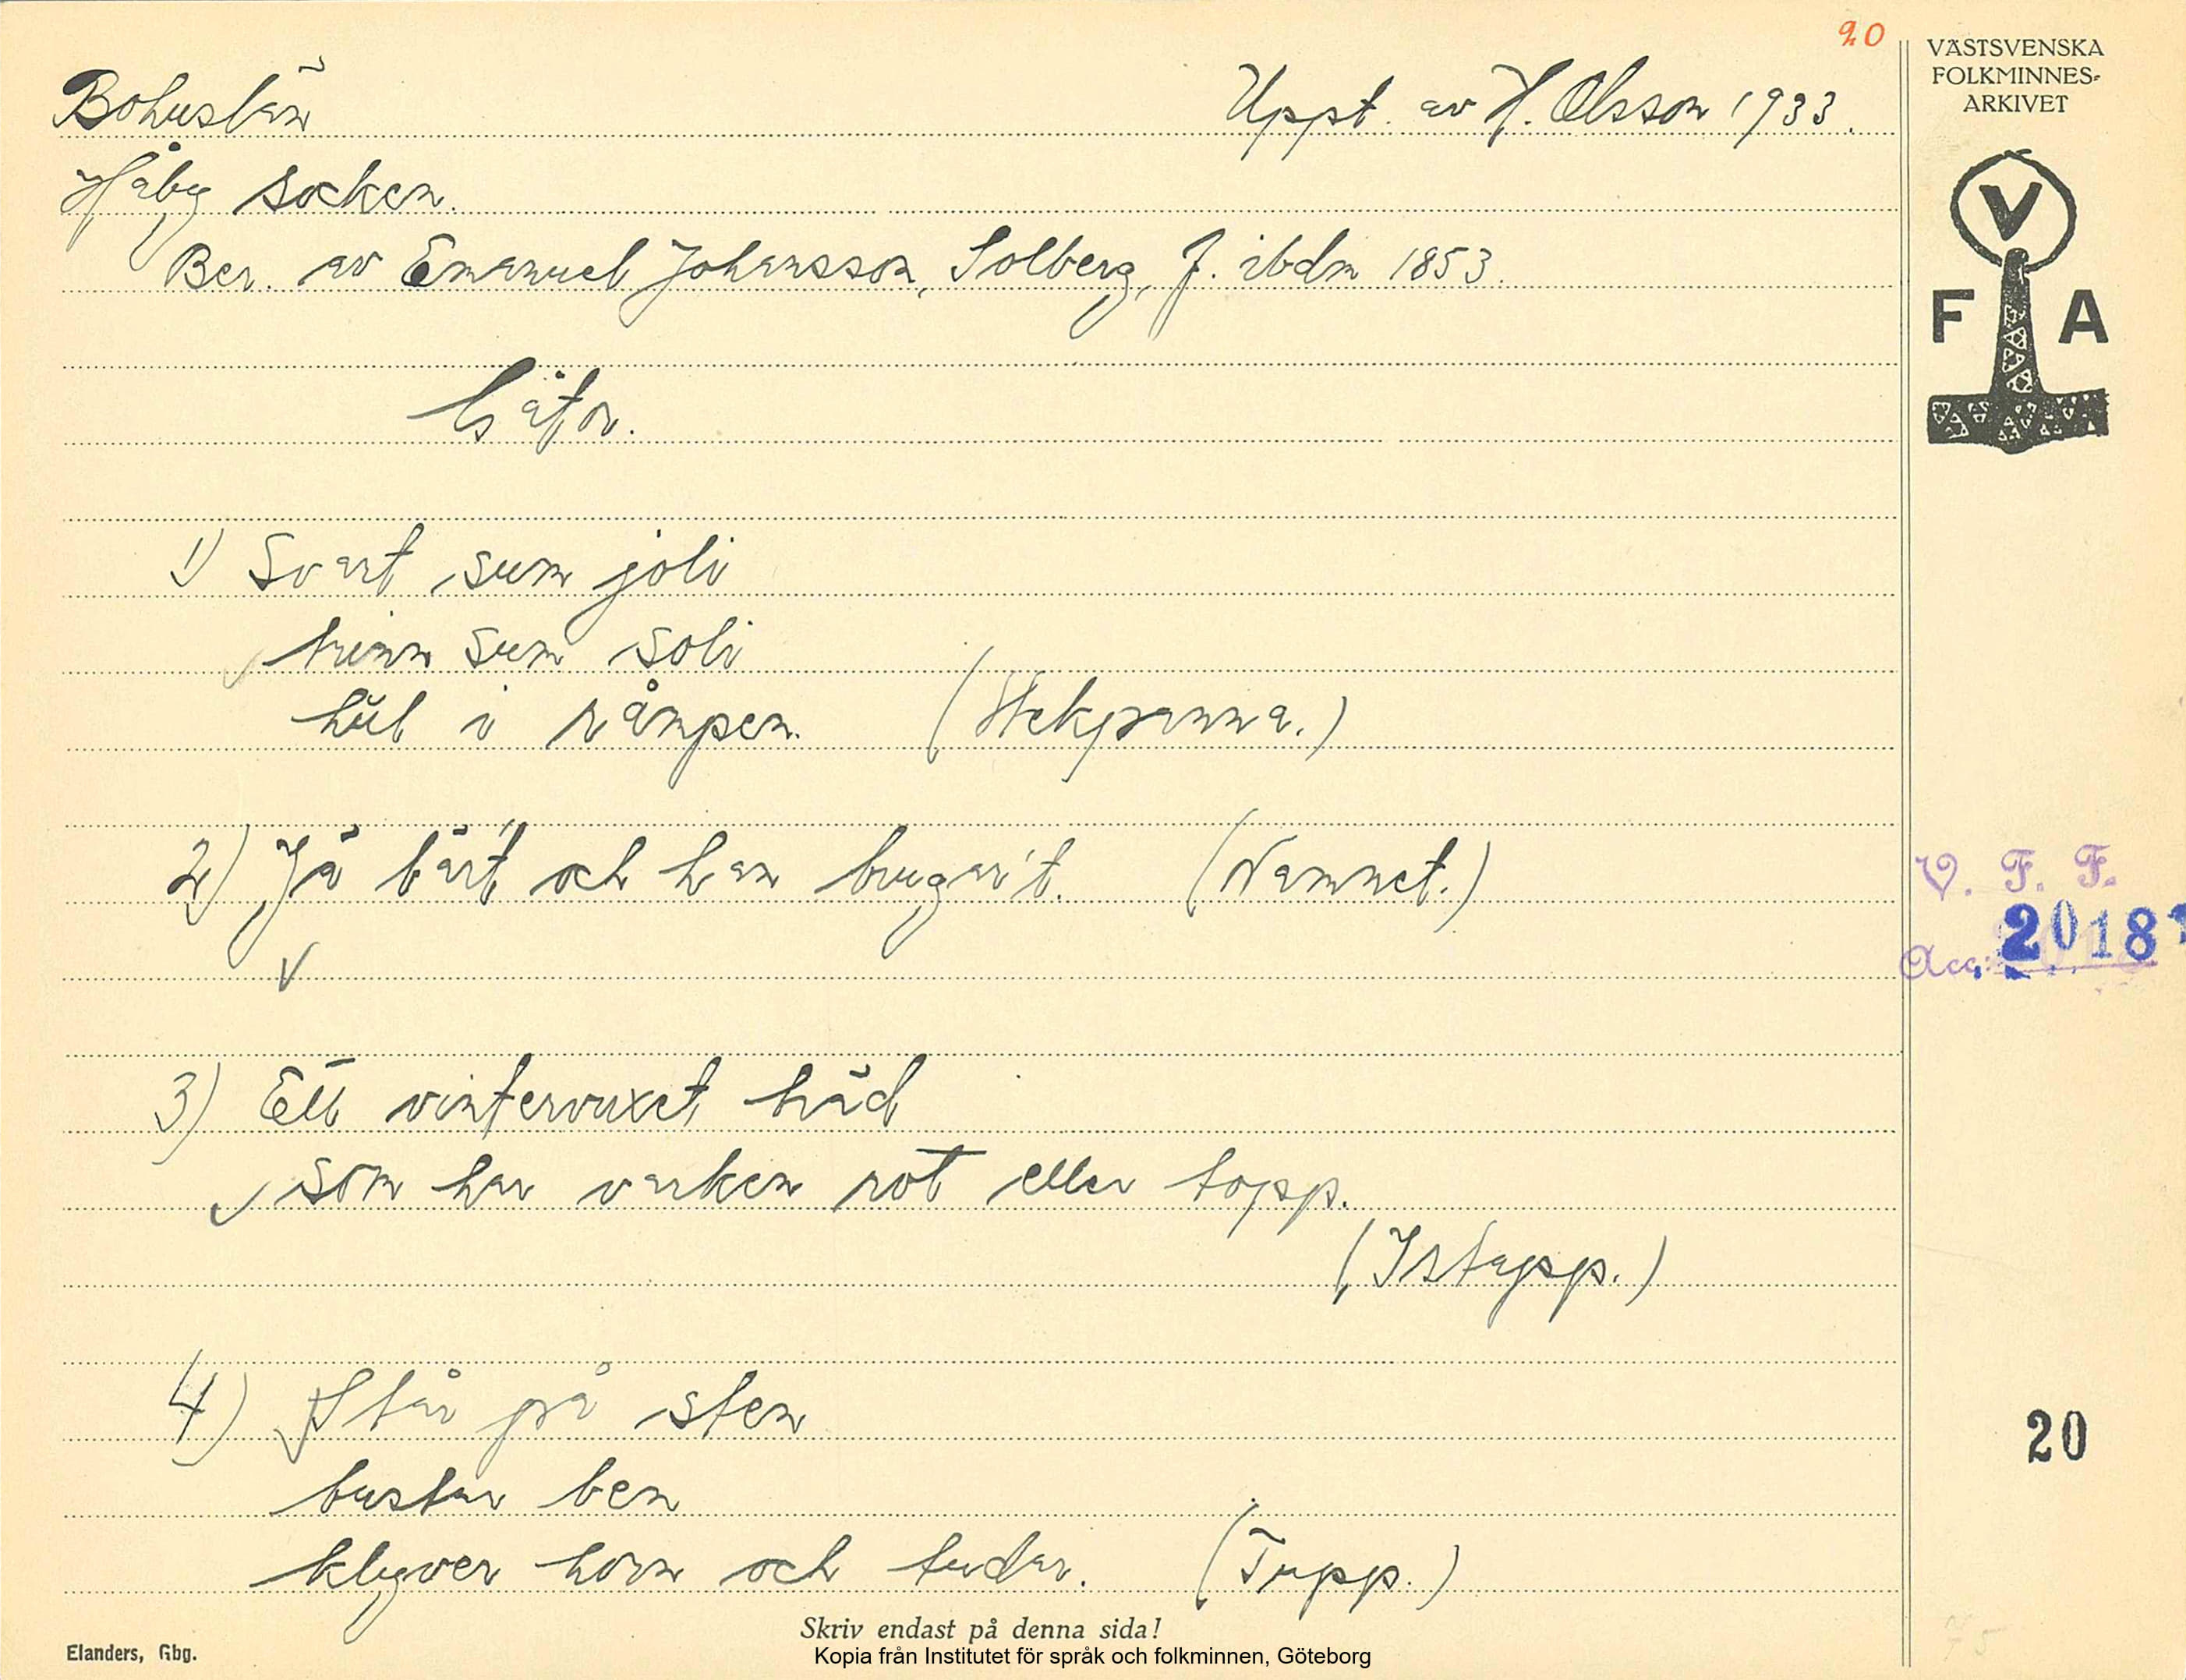 20
Bohuslän
Uppt. av H. Olsson 1933.
Håby socken.
Ber. av Emanuel Johansson, Solberg, f. ibdm 1853.
Gåtor.
1) Svart sum joli
trinn sum soli
hül i råmpen. (Stekpanna.)
2) Jä bärt och han brugar't. (Namnet.)
3) Ett vintervuxet träd
som har varken rot eller topp.
(Istapp.)
4) Står på sten
bustar ben
klyver horn och tudar. (Tupp.)
VÄSTSVENSKA
FOLKMINNES-
ARKIVET
V
F A
V. F. F.
Acc: 2018
20
Skriv endast på denna sida!
Elanders, Gbg.
Kopia från Institutet för språk och folkminnen, Göteborg